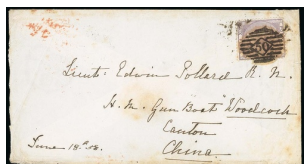 Lieut: Edwin Pollard R. N.
H. M. Gun Boat "Woodcock
Canton
China
June 18th 58.